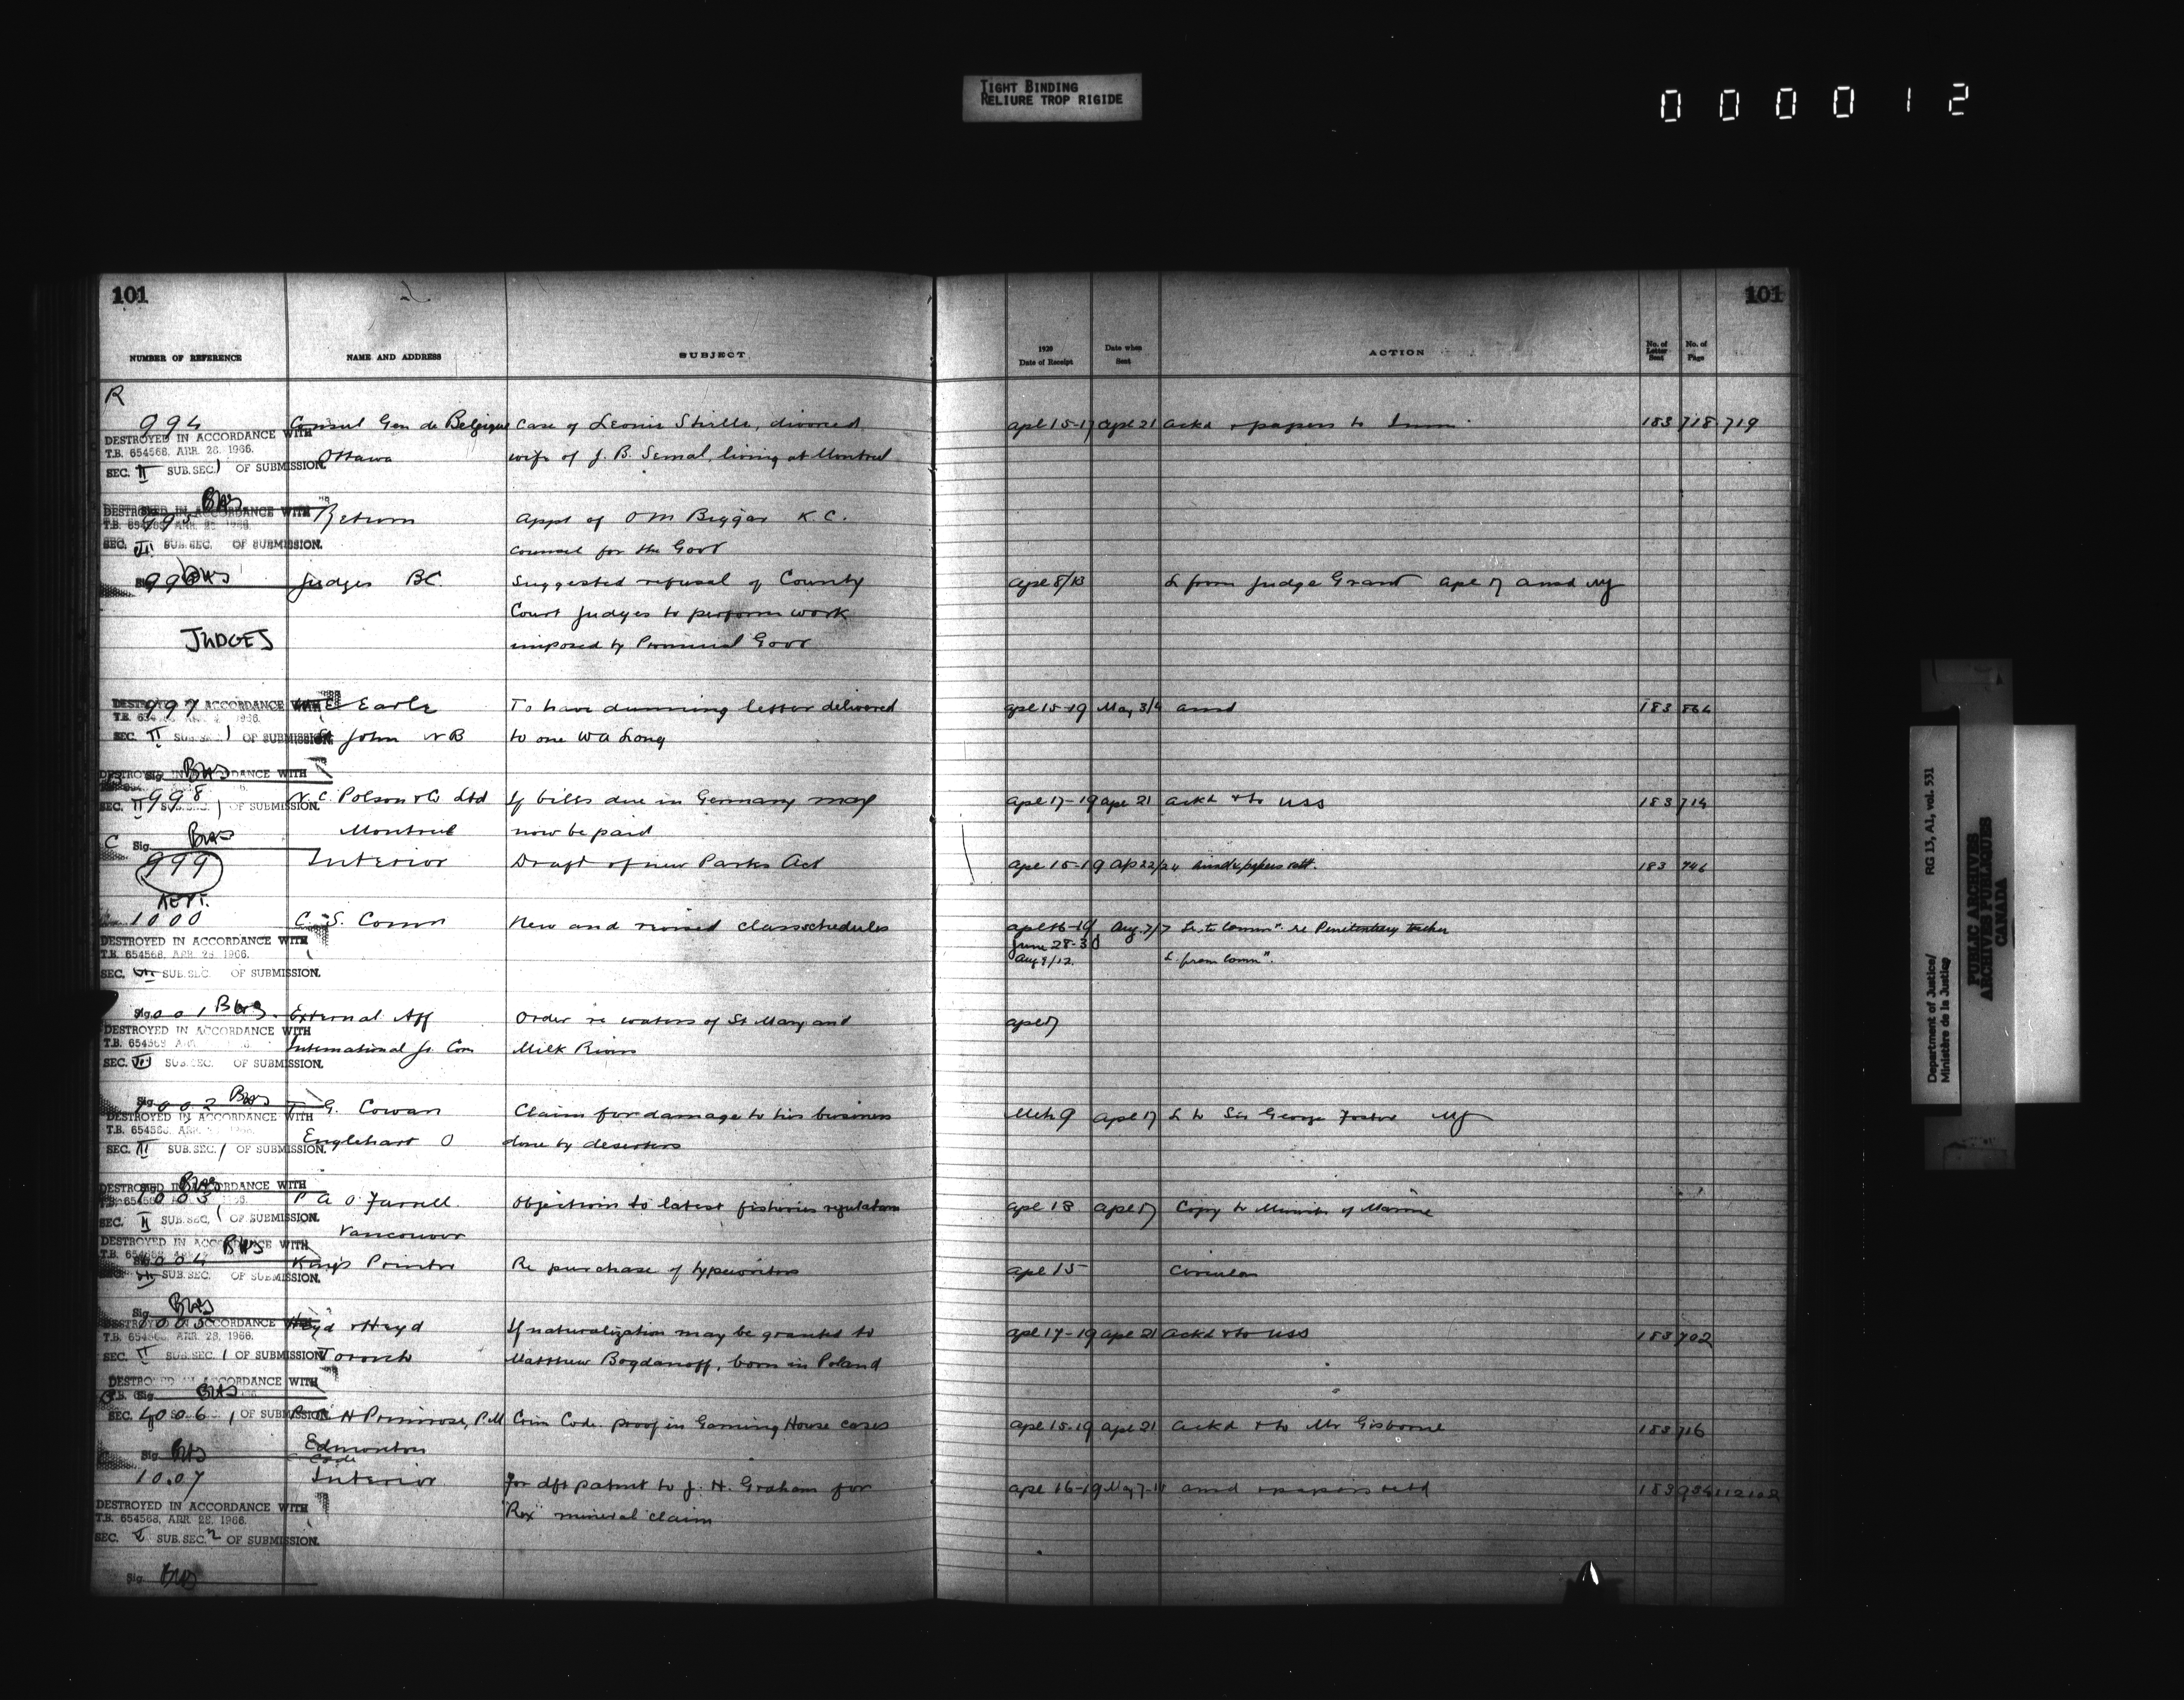 TIGHT BINDING
RELIURE TROP RIGIDE
000012
101
101
NUMBER OF REFERENCE NAME AND ADDRESS SUBJECT 1920 Date of Receipt Date when Sent ACTION No. of Letter Sent No. of Page
R
994 Consul Gen de Belgique Case of Leonie Strills, divorced apl 15-17 apl 21 ackd & papers to Imm 183 718-719
DESTROYED IN ACCORDANCE WITH
T.B. 654568, APR. 28, 1966.
Ottawa wife of J. B. Semal, living at Montreal
SEC. II SUB.SEC. 1 OF SUBMISSION.
BWS
DESTROYED IN ACCORDANCE WITH
995 Return Appt of O M Biggar K.C.
SEC. III SUB.SEC. OF SUBMISSION.
Counsel for the Govt
BWS
996 Judges BC. Suggested refusal of County apl 8/13 L from Judge Grant apl 17 ansd
Court Judges to perform work
JUDGES imposed by Provincial Govt
DESTROYED IN ACCORDANCE WITH
997 E Earle To have dunning letter delivered apl 15-19 May 3/4 ansd 183 864
SEC. II SUB.SEC. 1 OF SUBMISSION.
St John NB to one WA Long
Sig. BWS
DESTROYED IN ACCORDANCE WITH
998 N.C. Polson & Co Ltd If bills due in Germany may apl 17-19 apl 21 ackd & to USS 183 714
SEC. II SUB.SEC. 1 OF SUBMISSION.
Montreal now be paid
C Sig. BWS
999 Interior Draft of new Parks Act apl 15-19 Ap 22/24 ansd & papers retd. 183 746
KEPT.
1000 C. S. Comm New and revised class schedules apl 16-19 Aug. 7/7 Lr. to Commn. re Penitentiary teacher
June 28-30
Aug 9/12. L. from Commn.
DESTROYED IN ACCORDANCE WITH
T.B. 654568, APR. 28, 1966.
SEC. SUB.SEC. OF SUBMISSION.
Sig. BWS
1001 External Aff Order re waters of St Mary and apl 17
DESTROYED IN ACCORDANCE WITH
International Jt. Com Milk Rivers
SEC. III SUB.SEC. OF SUBMISSION.
Sig. BWS
1002 G. Cowan Claim for damage to his business Mch 9 apl 17 L to Sir George Foster
DESTROYED IN ACCORDANCE WITH
Englehart O done by deserters
SEC. III SUB.SEC. 1 OF SUBMISSION.
BWS
DESTROYED IN ACCORDANCE WITH
1003 P A O'Farrell. Objections to latest fisheries regulations apl 18 apl 17 Copy to Minister of Marine
SEC. II SUB.SEC. 1 OF SUBMISSION.
Vancouver
BWS
DESTROYED IN ACCORDANCE WITH
1004 Kings Printer Re purchase of typewriters apl 15 Circular
SUB.SEC. OF SUBMISSION.
Sig. BWS
DESTROYED IN ACCORDANCE WITH
1005 Heyd & Heyd If naturalization may be granted to apl 17-19 apl 21 ackd & to USS 183 702
T.B. 654568, APR. 28, 1966.
SEC. II SUB.SEC. 1 OF SUBMISSION.
Toronto Matthew Bogdanoff, born in Poland
DESTROYED IN ACCORDANCE WITH
Sig. BWS
1006 H Primrose, P.M Crim Code. proof in Gaming House cases apl 15-19 apl 21 ackd & to Mr Gisborne 183 716
SEC. II SUB.SEC. 1 OF SUBMISSION.
Edmonton
Sig. BWS
1007 Interior for dft patent to J. H. Graham for apl 16-19 May 7-10 ansd & papers retd 183 934
"Rex" mineral claim
DESTROYED IN ACCORDANCE WITH
T.B. 654568, APR. 28, 1966.
SEC. II SUB.SEC. 2 OF SUBMISSION.
Sig. BWS
Department of Justice/
Ministère de la Justice
RG 13, A1, vol. 531
PUBLIC ARCHIVES
ARCHIVES PUBLIQUES
CANADA